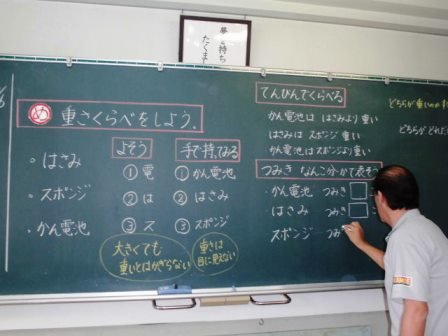 夢 持ち
たくま
め 重さくらべをしよう。
・はさみ
・スポンジ
・かん電池
よそう
①電
②は
③ス
手で持ってみる
①かん電池
②はさみ
③スポンジ
大きくても
重いとはかぎらない
重さは
目に見えない
てんびんでくらべる
かん電池は はさみより重い
はさみは スポンジ 重い
かん電池は スポンジより重い
つみき なんこ分かで表そう
・かん電池 つみき
はさみ つみき こ
スポンジ つみ
どちらが重いか
どちらがどれ